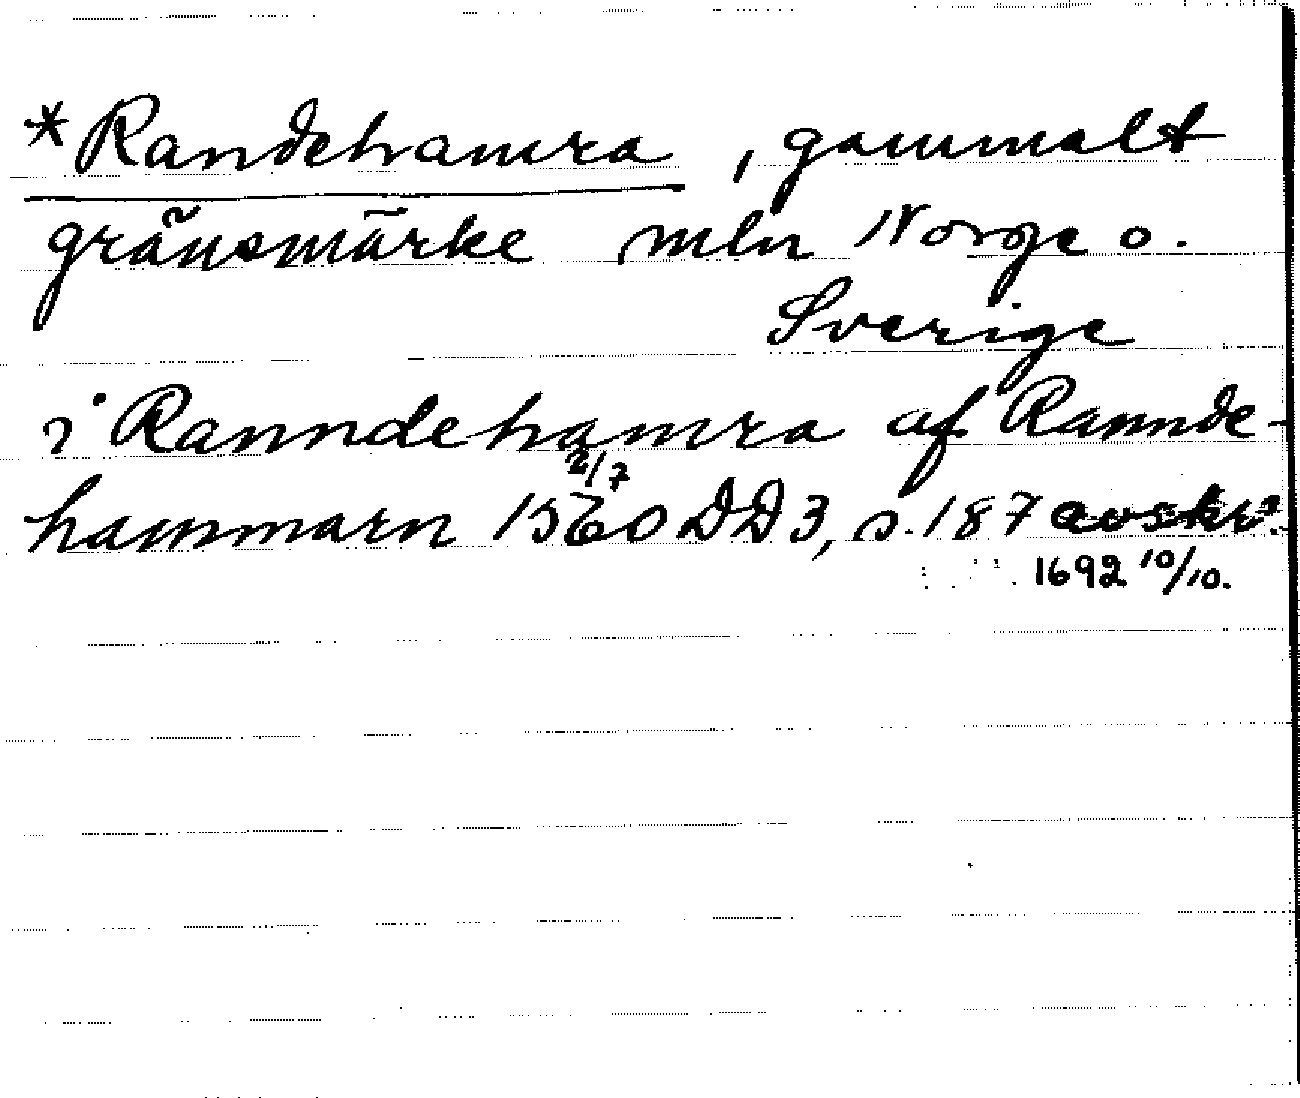 *Randehamra, gammalt
gränsmärke mln Norge o.
Sverige
i Ranndehamra af Rannde-
hammarn 1560 2/7 DD3, s. 187 avskr.
1692 10/10.